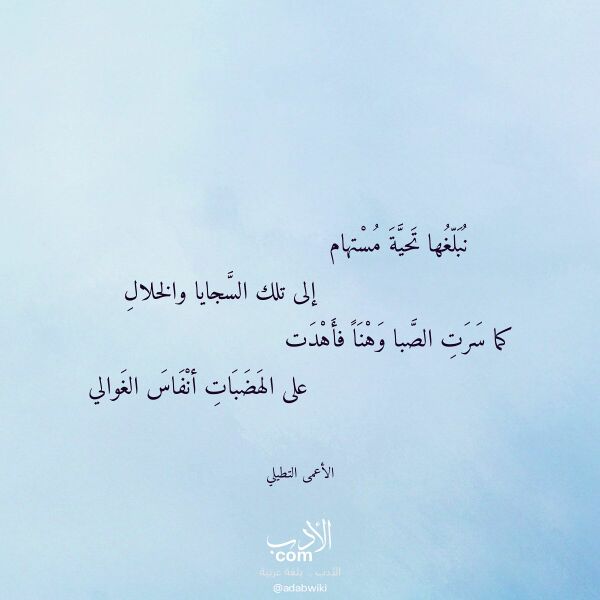 نُبَلّغُها تَحيَّةَ مُسْتهام
إلى تلك السَّجايا والخلالِ
كما سَرَتِ الصَّبا وَهْنَاً فأَهْدَت
على الهَضَبَاتِ أنْفَاسَ الغَوالي
الأعمى التطيلي
الأدب
com
الأدب .. بلغة عربية
@adabwiki